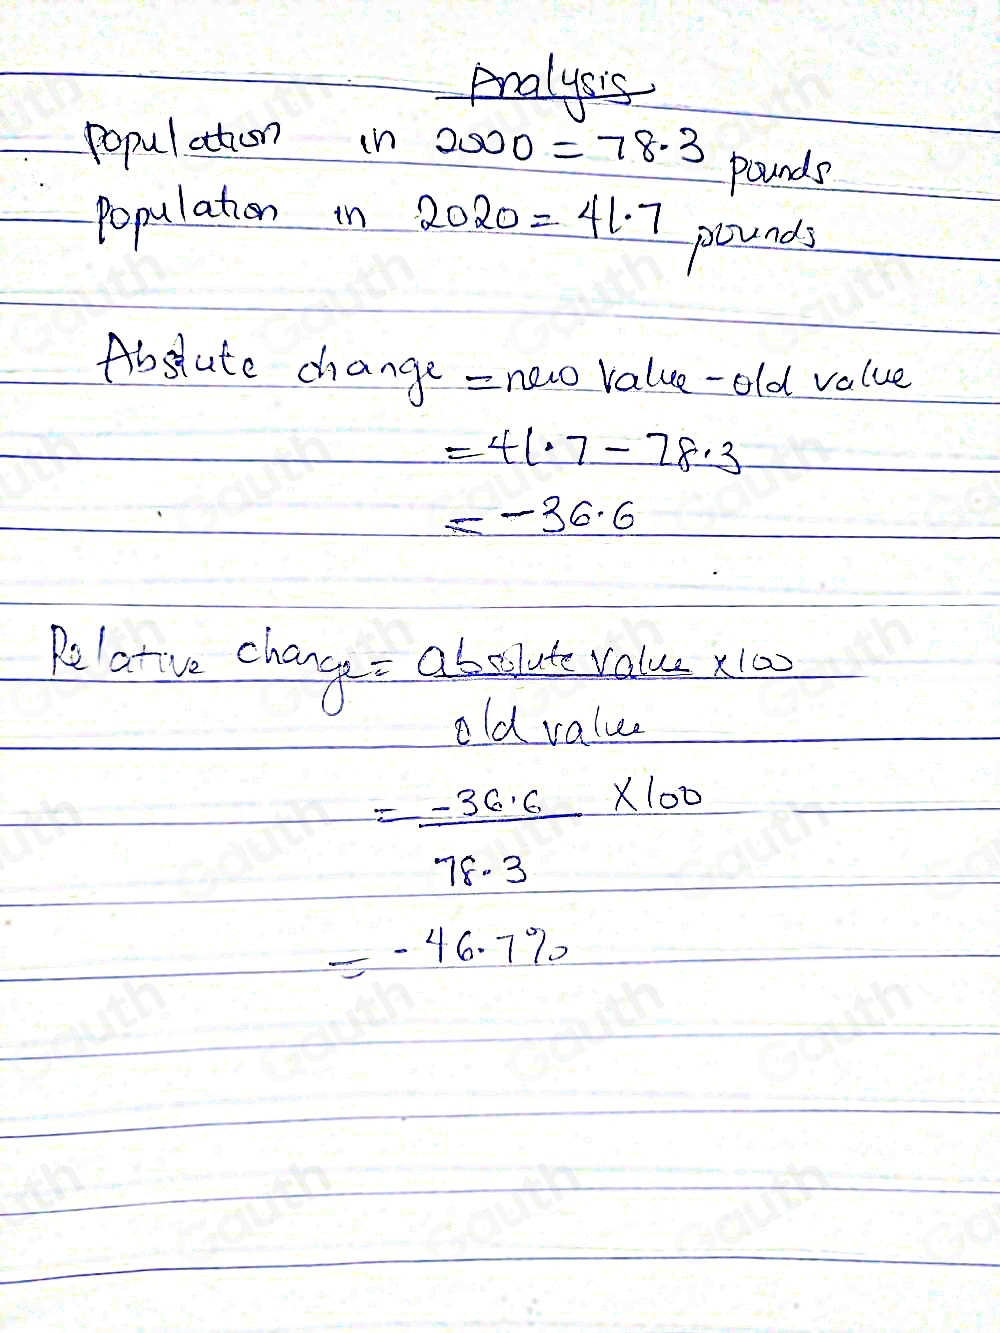 Analysis
Population in 2000 = 78.3 pounds
Population in 2020 = 41.7 pounds
Absolute change = new value - old value
= 41.7 - 78.3
= -36.6
Relative change = absolute value x100
old value
= -36.6 x100
78.3
= -46.7%